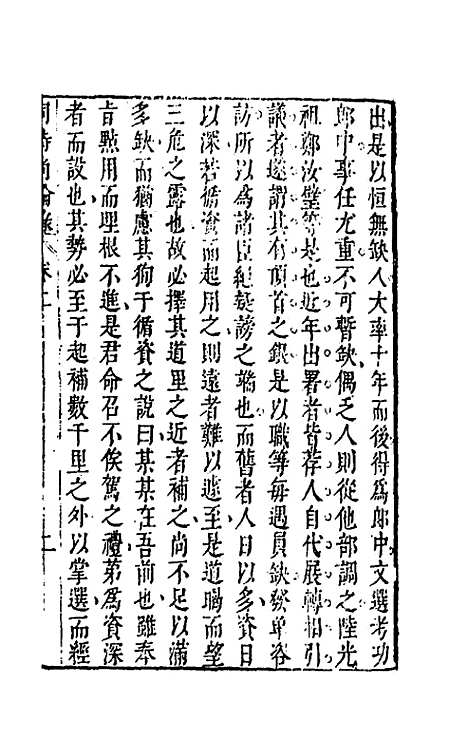 出是以恒無缺人大率十年而後得爲郎中文選考功
郎中事任尤重不可暫缺偶乏人則從他部調之陸光
祖鄭汝璧等是也近年出署者皆荐人自代展轉相引
議者遂謂其有頂首之銀是以職等每遇員缺發單咨
訪所以爲諸臣絕疑謗之端也而舊者人日以多資日
以深若循資而起用之則遠者難以遽至是道暍而望
三危之露也故必擇其道里之近者補之尚不足以滿
多缺而猶慮其狥于循資之說曰某某在吾前也雖奉
旨點用而堅根不進是君命召不俟駕之禮第爲資深
者而設也其勢必至于起補數千里之外以掌選而經
同時尚論錄 卷二 二